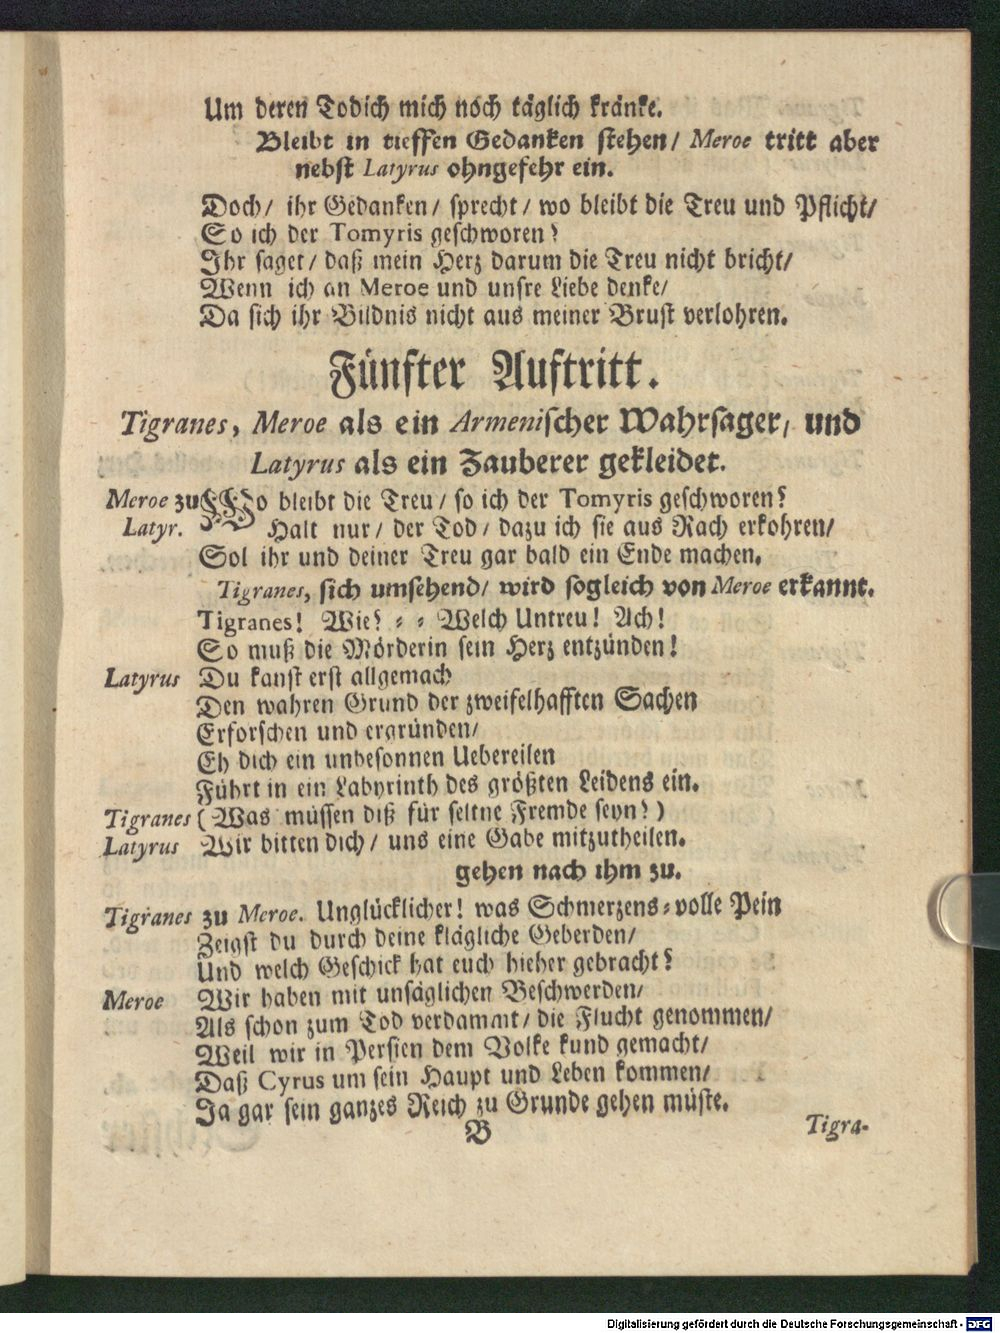 Um deren Todich mich noch täglich kränke.
Bleibt in tieffen Gedanken stehen/ Meroe tritt aber
nebst Latyrus ohngefehr ein.
Doch/ ihr Gedanken/ sprecht/ wo bleibt die Treu und Pflicht/
So ich der Tomyris geschworen?
Ihr saget/ daß mein Herz darum die Treu nicht bricht/
Wenn ich an Meroe und unsre Liebe denke/
Da sich ihr Bildnis nicht aus meiner Brust verlohren.
Fünfter Auftritt.
Tigranes, Meroe als ein Armenischer Wahrsager, und
Latyrus als ein Zauberer gekleidet.
Meroe zu Wo bleibt die Treu/ so ich der Tomyris geschworen?
Latyr. Halt nur/ der Tod/ dazu ich sie aus Rach erkohren/
Sol ihr und deiner Treu gar bald ein Ende machen.
Tigranes, sich umsehend/ wird sogleich von Meroe erkannt.
Tigranes! Wie? ⸗ ⸗ Welch Untreu! Ach!
So muß die Mörderin sein Herz entzünden!
Latyrus Du kanst erst allgemach
Den wahren Grund der zweifelhafften Sachen
Erforschen und ergründen/
Eh dich ein unbesonnen Uebereilen
Führt in ein Labyrinth des größten Leidens ein.
Tigranes (Was müssen diß für seltne Fremde seyn?)
Latyrus Wir bitten dich/ uns eine Gabe mitzutheilen.
gehen nach ihm zu.
Tigranes zu Meroe. Unglücklicher! was Schmerzens⸗volle Pein
Zeigst du durch deine klägliche Geberden/
Und welch Geschick hat euch hieher gebracht?
Meroe Wir haben mit unsäglichen Beschwerden/
Als schon zum Tod verdammt/ die Flucht genommen/
Weil wir in Persien dem Volke kund gemacht/
Daß Cyrus um sein Haupt und Leben kommen/
Ja gar sein ganzes Reich zu Grunde gehen müste.
B Tigra-
Digitalisierung gefördert durch die Deutsche Forschungsgemeinschaft - DFG